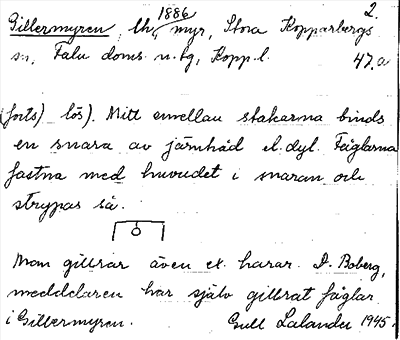 2.
1886
Gillermyren, Uh, myr, Stora Kopparbergs
sn, Falu doms. o. tg, Kopp. l. 47.a
(forts) lös). Mitt emellan stakarna binds
en snara av järntråd el. dyl. Fåglarna
fastna med huvudet i snaran och
strypas så.
Man gillrar även ex. harar. D. Boberg,
meddelaren har själv gillrat fåglar
i Gillermyren. Gull Lalander 1945.